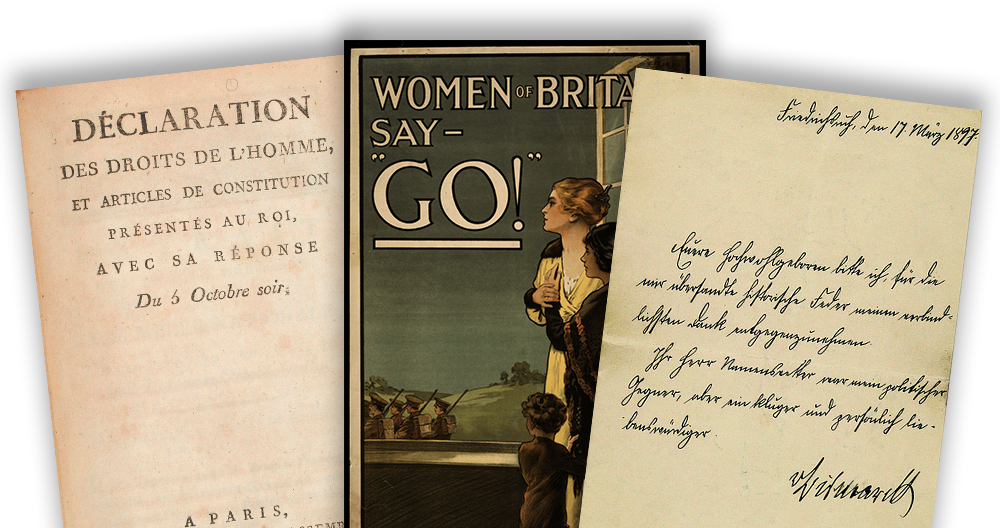 DÉCLARATION
DES DROITS DE L'HOMME,
ET ARTICLES DE CONSTITUTION
PRÉSENTÉS AU ROI,
AVEC SA RÉPONSE
Du 5 Octobre soir.
A PARIS,
WOMEN OF BRITA
SAY –
"GO!"
Friedrichsruh, den 17. März 1897.
Euere Hochwohlgeboren bitte ich, für die
mir übersandte historische Feder meinen verbind-
lichsten Dank entgegenzunehmen.
Ihr Herr Namensvetter war mein politischer
Gegner, aber ein kluger und persönlich lie-
benswürdiger.
v Bismarck